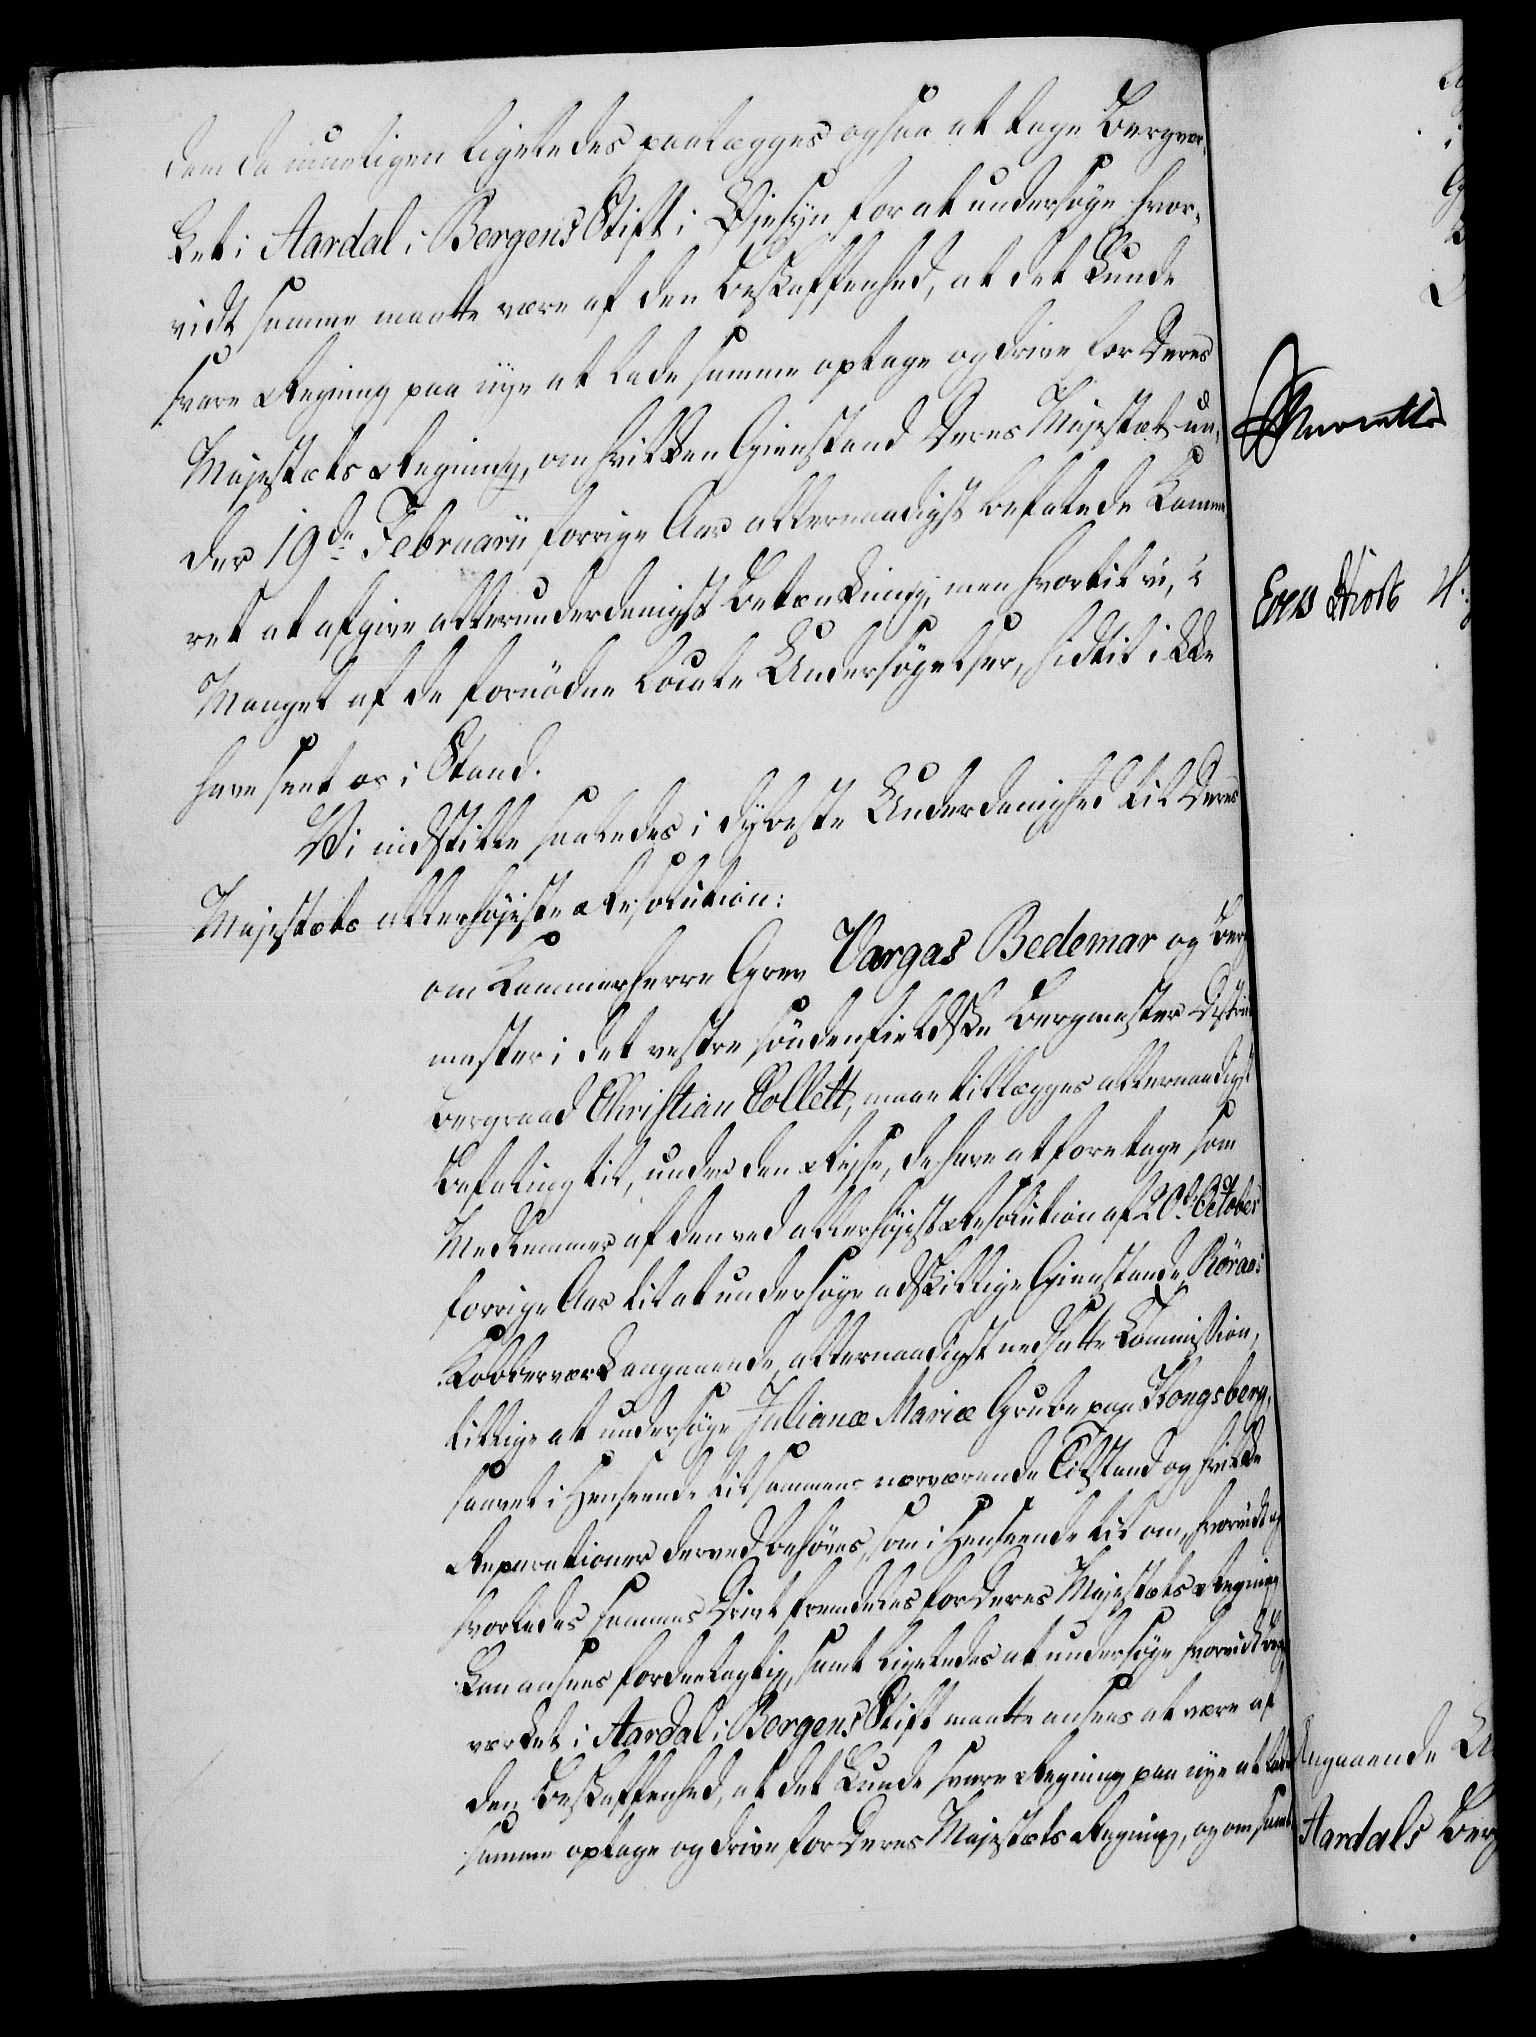 dem da mueligen ligeledes paalægges ogsaa at tage Bergvær-
ket i Aardal i Bergens Stift i Øjesyn for at undersøge hvor-
vidt samme maatte være af den Beskaffenhed, at det kunde
svare Regning paa nye at lade samme optage og drive for Deres
Majestæts Regning, om hvilken Gienstand Deres Majestæt un-
der 19de Februarii forrige Aar allernaadigst befalede Kamme
ret at afgive allerunderdanigst Betænkning, men hvortil vi, i
Mangel af de fornødne locale Undersøgelser, hidtil ikke
have seet os i Stand.
Vi indstille saaledes i dybeste Underdanighed til Deres
Majestæts allerhøjeste Resolution:
om Kammerherre Grev Vargas Bedemar og Berg
mester i det vestre søndenfieldske Bergmester District
Bergraad Christian Collett, maae tillægges allernaadigst
Befaling til, under den Rejse, de have at foretage som
Medlemmer af den ved allerhøjest Resolution af 20d October
forrige Aar til at undersøge adskillige Gienstande, Röraas
Kobberværk angaaende, allernaadigst nedsatte Commission,
tillige at undersøge Julianæ Mariæ Grube paa Kongsberg,
saavel i Henseende til sammes nærværende Tilstand og hvilke
Reparationer derved behøves, som i Henseende til om, hvorvidt og
hvorledes sammes Drivt fremdeles for Deres Majestæts Regning
kan ansees fordeelagtig, samt ligeledes at undersøge hvorvidt Berg
værket i Aardal i Bergens Stift maatte ansees at være af
den Beskaffenhed, at det kunde svare Regning paa nye at lade
samme optage og drive for Deres Majestæts Regning, og om samt
Angaaende
Aardals Berg